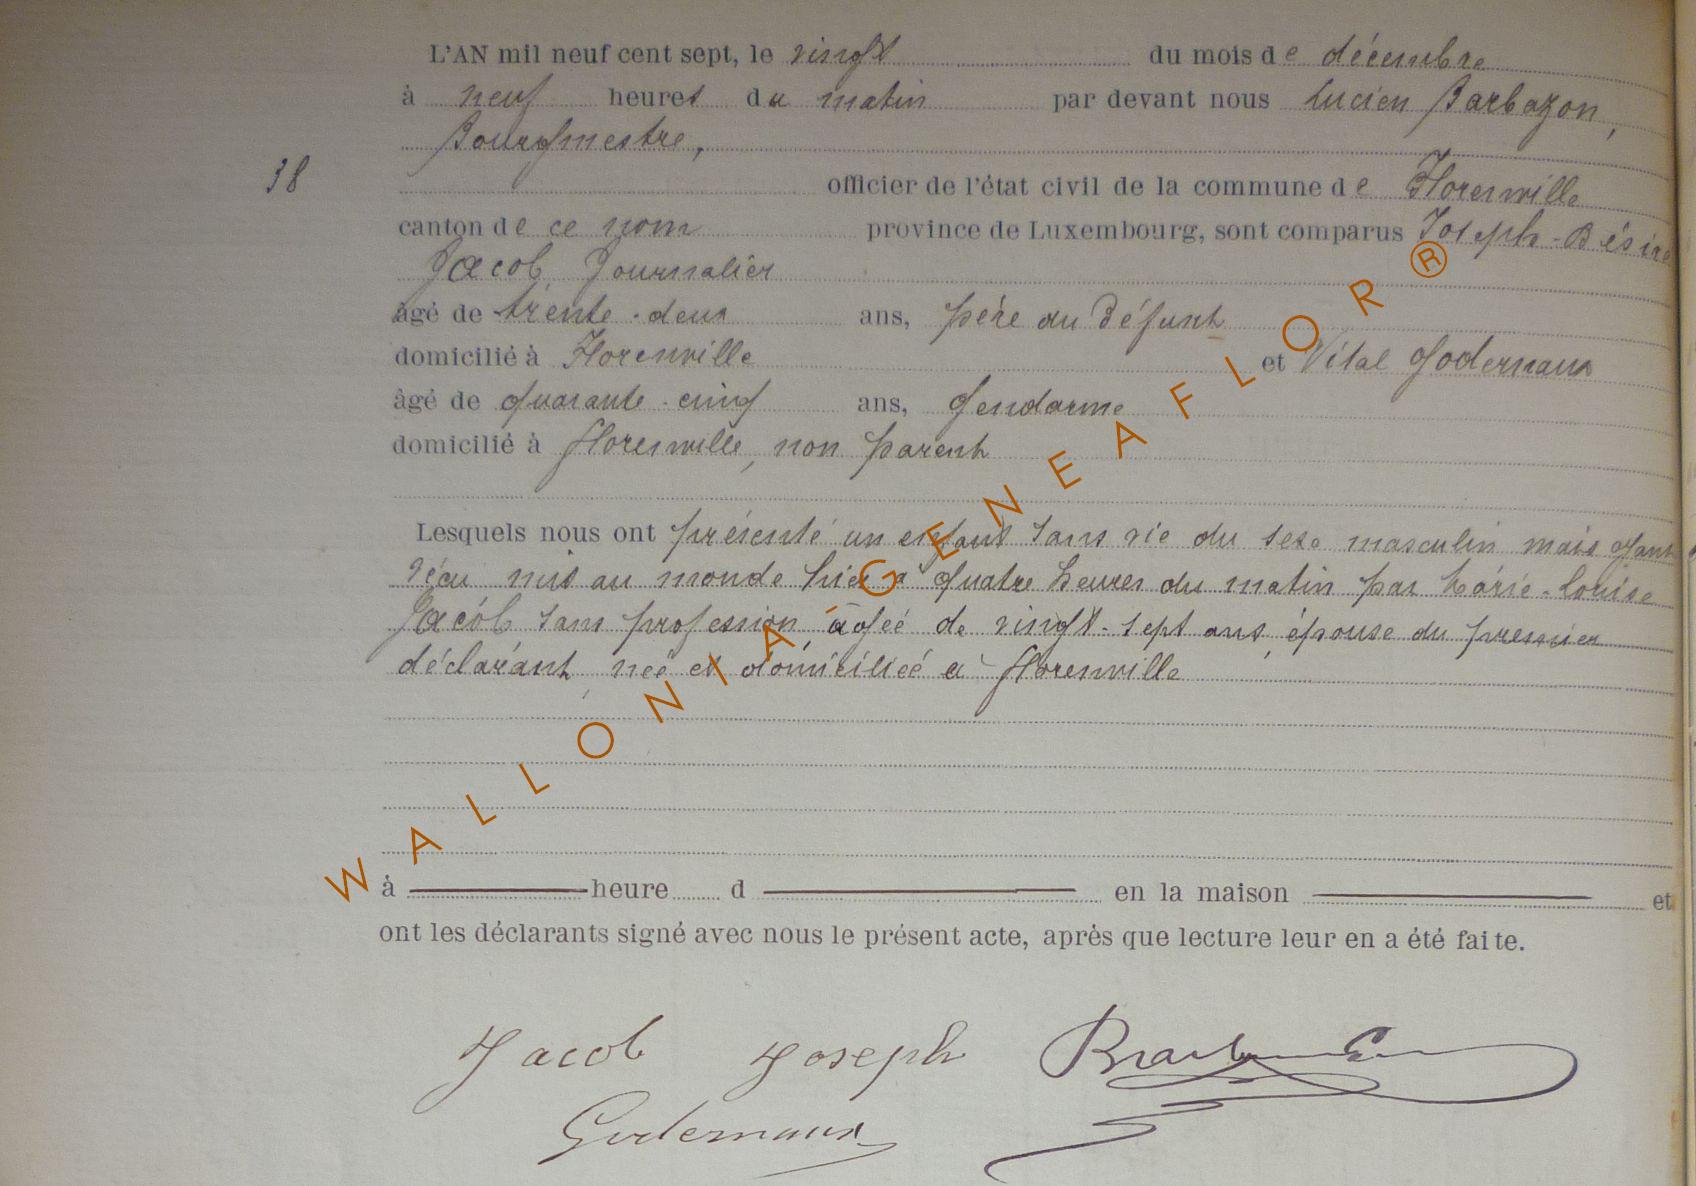 L'AN mil neuf cent sept, le vingt du mois de décembre
à neuf heures du matin par devant nous Lucien Barbazon,
Bourgmestre,
38
officier de l'état civil de la commune de Florenville
canton de ce nom province de Luxembourg, sont comparus Joseph-Désiré
Jacob Journalier
âgé de trente-deux ans, père du défunt
domicilié à Florenville et Vital Godernaux
âgé de quarante-cinq ans, gendarme
domicilié à Florenville, non parent
Lesquels nous ont présenté un enfant sans vie du sexe masculin mais ayant
vécu mis au monde hier à quatre heures du matin par Marie-Louise
Jacob sans profession, âgée de vingt-sept ans, épouse du premier
déclarant, née et domiciliée à Florenville
à heure d en la maison et
ont les déclarants signé avec nous le présent acte, après que lecture leur en a été faite.
Jacob Joseph
Godernaux
WALLONIA-GENEAFLOR®